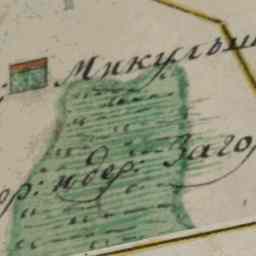 Микульш
ор: и дер: Заго